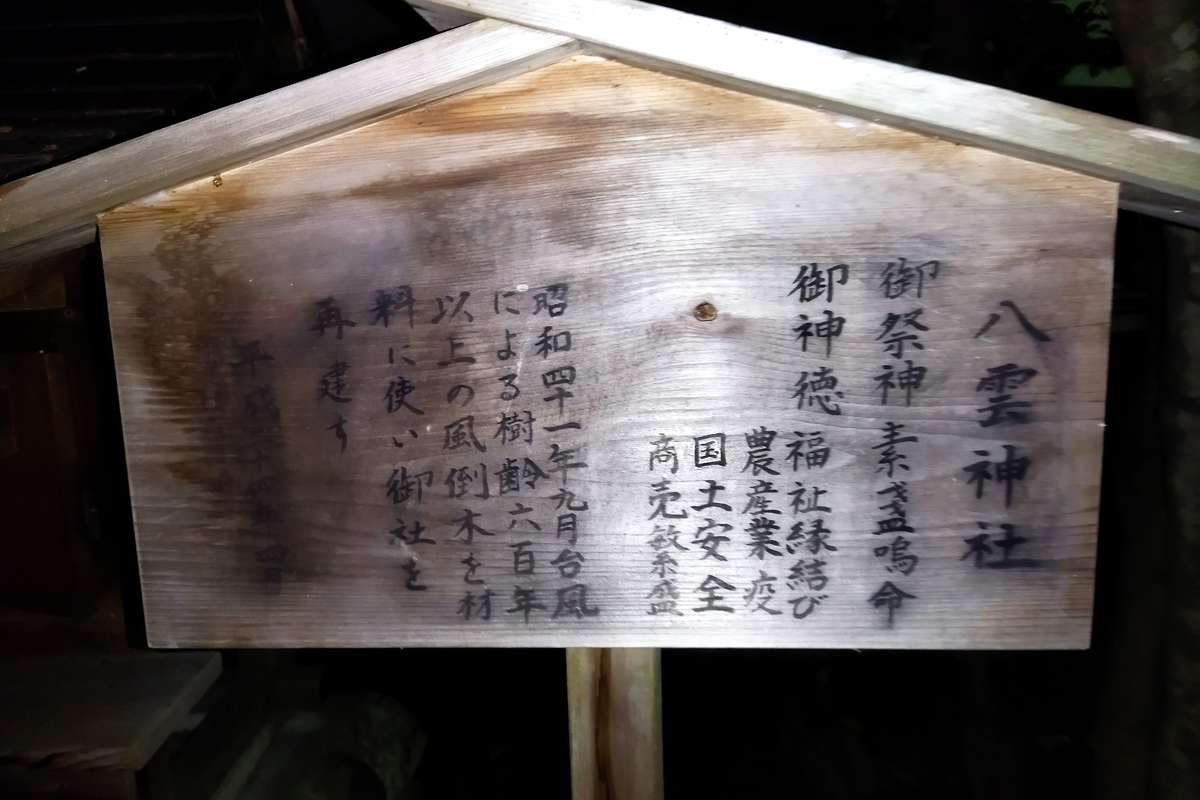 八雲神社
御祭神 素盞嗚命
御神徳 福祉縁結び
農産業 疫
国土安全
商売繁盛
昭和四十一年九月台風
による樹齢六百年
以上の風倒木を材
料に使い御社を
再建す
平成 四